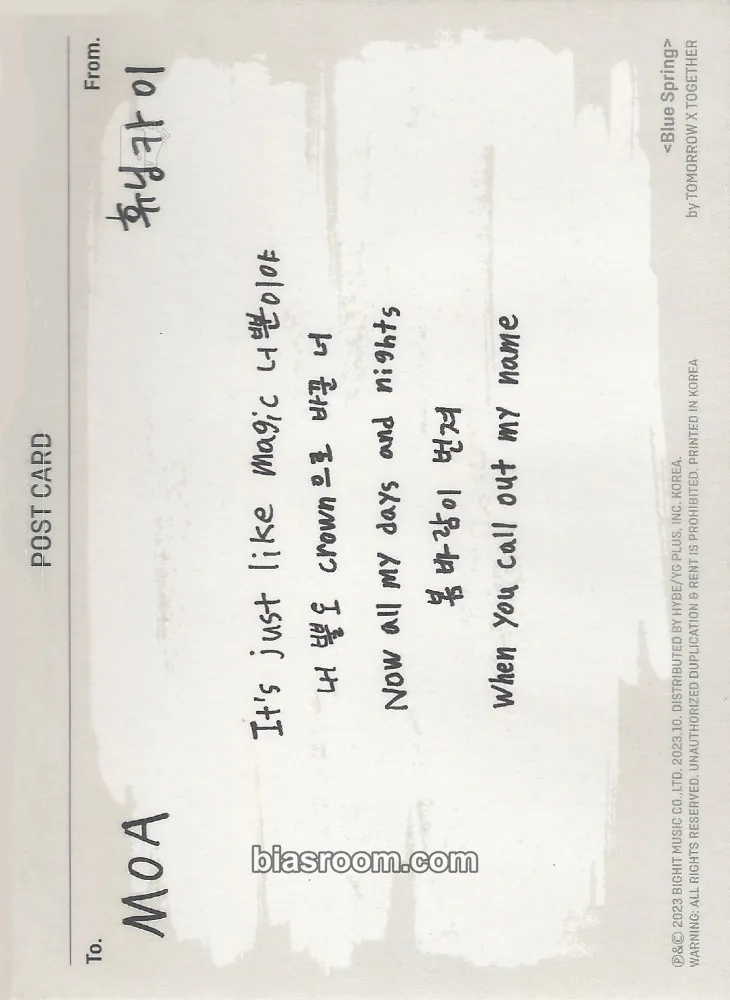 POST CARD
To.
From.
MOA
휴닝카이
It's just like magic 너뿐이야
내 뿔도 crown으로 바꾼 너
Now all my days and nights
봄바람이 번져
When you call out my name
biasroom.com
<Blue Spring>
by TOMORROW X TOGETHER
℗&© 2023 BIGHIT MUSIC CO., LTD. 2023.10. DISTRIBUTED BY HYBE/YG PLUS, INC. KOREA.
WARNING: ALL RIGHTS RESERVED. UNAUTHORIZED DUPLICATION & RENT IS PROHIBITED. PRINTED IN KOREA